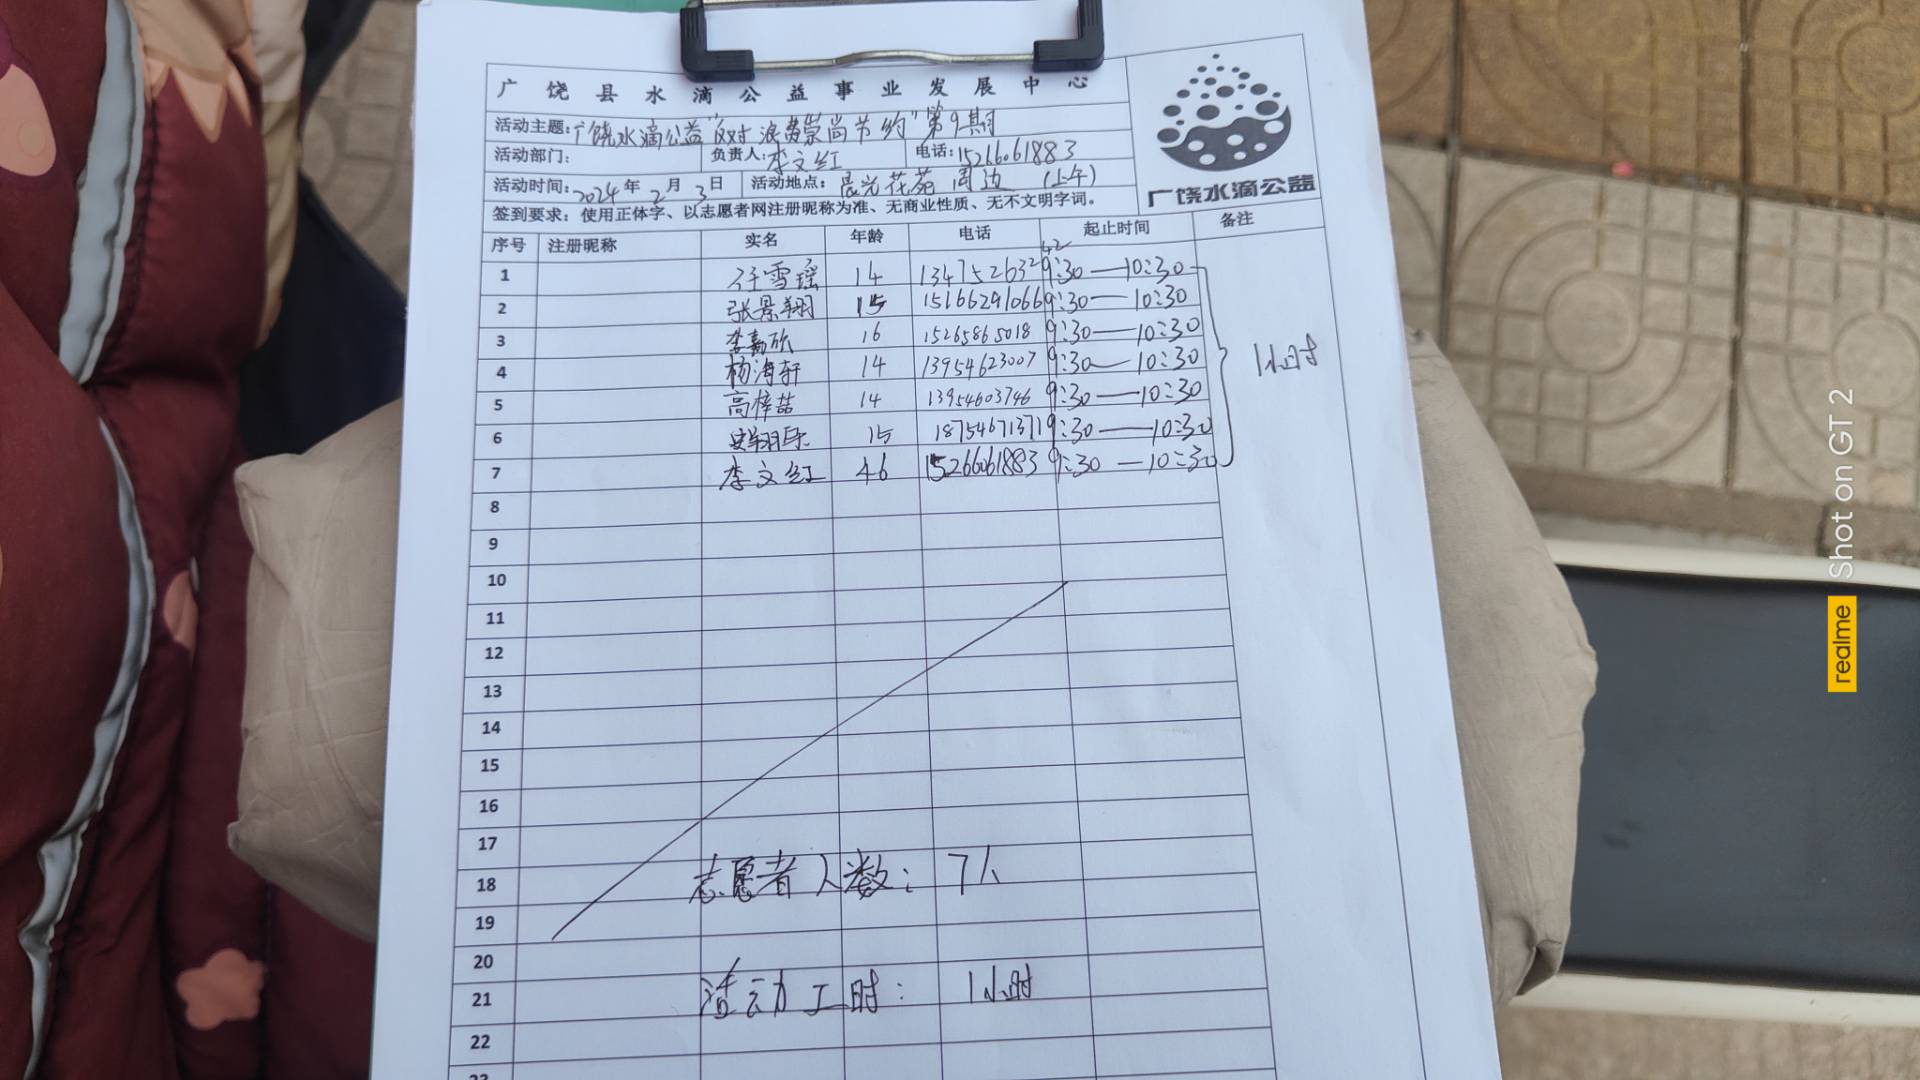 广饶县水滴公益事业发展中心
活动主题:广饶水滴公益"反对浪费崇尚节约"第9期
活动部门: 负责人:李文红 电话:15266061883
活动时间:2024年2月3日 活动地点:晨光花苑周边 (上午)
广饶水滴公益
签到要求：使用正体字、以志愿者网注册昵称为准、无商业性质、无不文明字词。
序号 注册昵称 实名 年龄 电话 起止时间 备注
1 任雪瑶 14 13475263242 9:30—10:30
2 张景翔 15 15166291066 9:30—10:30
3 李嘉欣 16 15265865018 9:30—10:30
1小时
4 杨涛轩 14 13954623007 9:30—10:30
5 高梓喆 14 13954603746 9:30—10:30
6 15 18754671371 9:30—10:30
7 李文红 46 15266061883 9:30—10:30
8
9
10
11
12
13
14
15
16
17
18 志愿者人数: 7人
19
20
21 活动工时: 1小时
22
23
realme Shot on GT 2